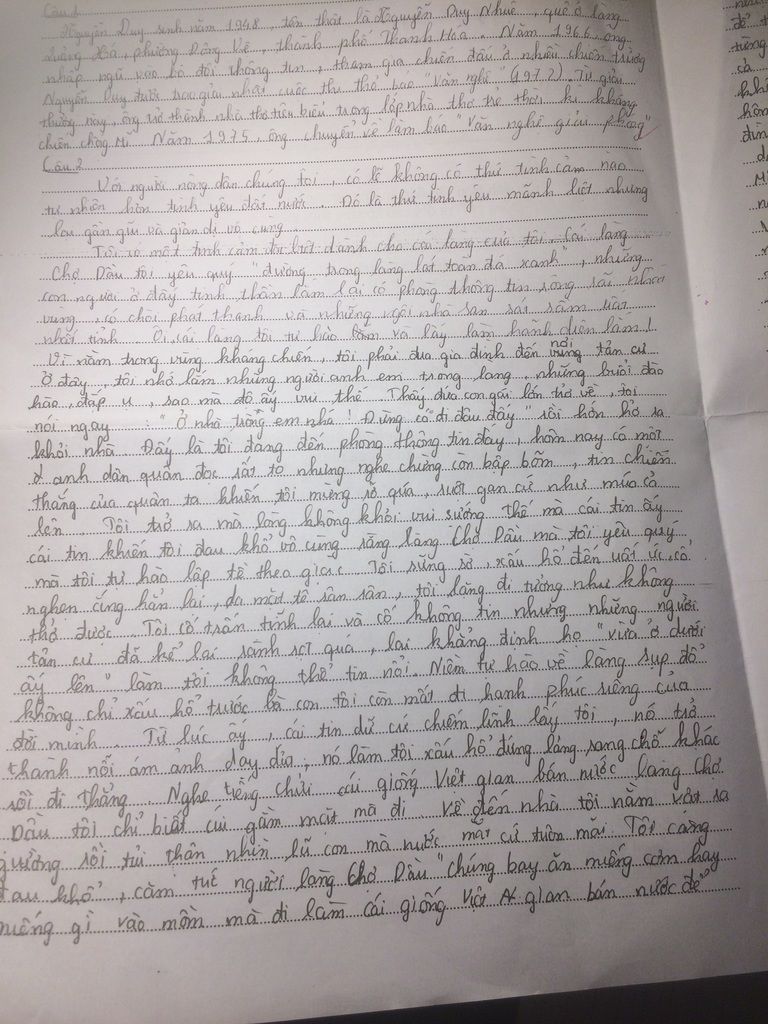 Câu 1
Nguyễn Duy sinh năm 1948, tên thật là Nguyễn Duy Nhuệ, quê ở làng
Quảng Xá, phường Đông Vệ, thành phố Thanh Hoá. Năm 1966, ông
nhập ngũ vào bộ đội thông tin, tham gia chiến đấu ở nhiều chiến trường
Nguyễn Duy được trao giải nhất cuộc thi thơ báo "Văn nghệ" (1972). Từ giải
thưởng này, ông trở thành nhà thơ tiêu biểu trong lớp nhà thơ trẻ thời kì kháng
chiến chống Mĩ. Năm 1975, ông chuyển về làm báo "Văn nghệ giải phóng"
Câu 2
Với người nông dân chúng tôi, có lẽ không có thứ tình cảm nào
tự nhiên hơn tình yêu đất nước. Đó là thứ tình yêu mãnh liệt nhưng
lại gần gũi và giản dị vô cùng
Tôi có một tình cảm đặc biệt dành cho cái làng của tôi. Cái làng
Chợ Dầu tôi yêu quý "đường trong làng lát toàn đá xanh", những
con người ở đây tinh thần lắm lại có phòng thông tin rộng rãi nhất
vùng, có chòi phát thanh và những ngôi nhà san sát sầm uất
nhất tỉnh. Ôi cái làng tôi tự hào lắm và lấy làm hãnh diện lắm!
Vì nằm trong vùng kháng chiến, tôi phải đưa gia đình đến nơi tản cư
Ở đây, tôi nhớ lắm những người anh em trong làng, những buổi đào
hào, đắp ụ, sao mà độ ấy vui thế. Thấy đứa con gái lớn trở về, tôi
nói ngay: "Ở nhà trông em nhá! Đừng có đi đâu đấy" rồi hớn hở ra
khỏi nhà. Đấy là tôi đang đến phòng thông tin đấy, hôm nay có một
anh dân quân đọc rất to nhưng nghe chừng còn bập bõm, tin chiến
thắng của quân ta khiến tôi mừng rỡ quá, ruột gan cứ như múa cả
lên. Tôi trở ra mà lòng không khỏi vui sướng. Thế mà cái tin ấy
cái tin khiến tôi đau khổ vô cùng rằng làng Chợ Dầu mà tôi yêu quý
mà tôi tự hào lập tề theo giặc. Tôi sững sờ, xấu hổ đến uất ức, cổ
nghẹn ắng hẳn lại, da mặt tê rân rân, tôi lặng đi tưởng như không
thở được. Tôi cố trấn tĩnh lại và cố không tin nhưng những người
tản cư đã kể lại rành rọt quá, lại khẳng định họ "vừa ở dưới
ấy lên" làm tôi không thể tin nổi. Niềm tự hào về làng sụp đổ
không chỉ xấu hổ trước bà con tôi còn mất đi hạnh phúc riêng của
đời mình. Từ lúc ấy, cái tin dữ cứ chiếm lĩnh lấy tôi, nó trở
thành nỗi ám ảnh day dứa, nó làm tôi xấu hổ đứng lảng sang chỗ khác
rồi đi thẳng. Nghe tiếng chửi cái giống Việt gian bán nước làng Chợ
Dầu tôi chỉ biết cúi gằm mặt mà đi. Về đến nhà tôi nằm vật ra
giường rồi tủi thân nhìn lũ con mà nước mắt cứ tuôn mãi. Tôi càng
đau khổ, căm tức người làng Chợ Dầu "chúng bay ăn miếng cơm hay
miếng gì vào mồm mà đi làm cái giống Việt gian bán nước để